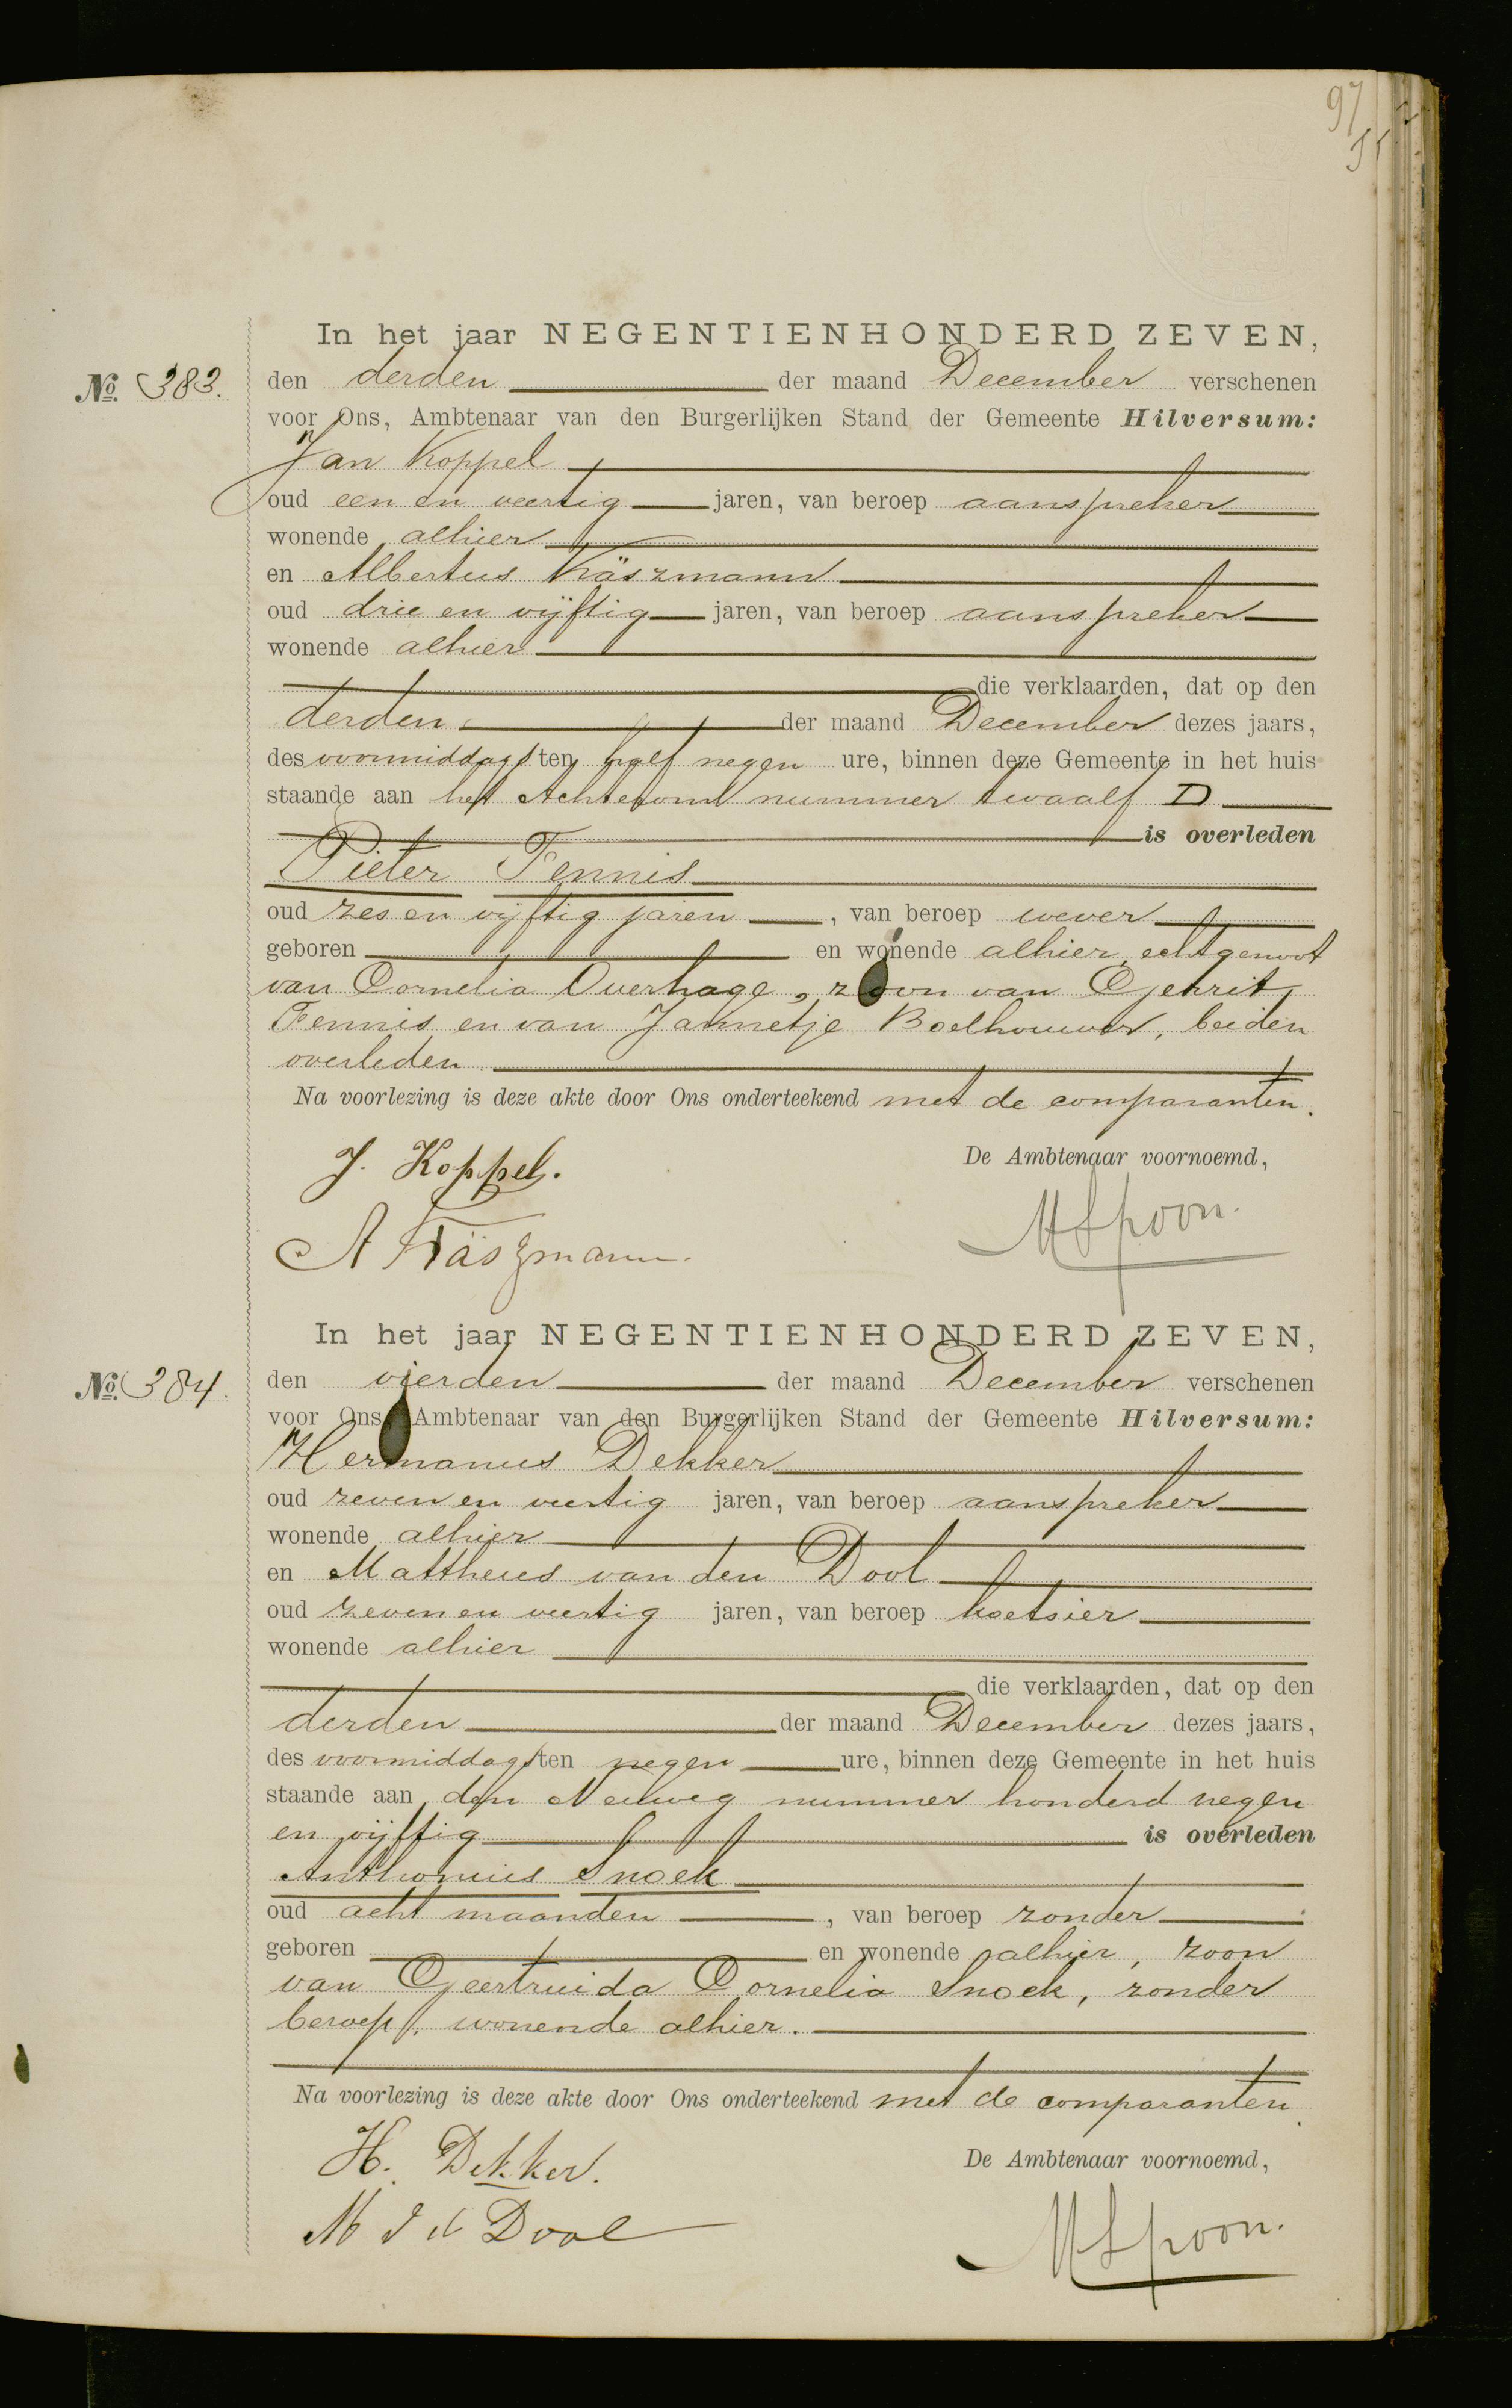 97
In het jaar NEGENTIENHONDERD ZEVEN,
No. 383.
den derden der maand December verschenen
voor Ons, Ambtenaar van den Burgerlijken Stand der Gemeente Hilversum:
Jan Koppel
oud een en veertig jaren, van beroep aanspreker
wonende alhier
en Albertus Käszmann
oud drie en vijftig jaren, van beroep aanspreker
wonende alhier
die verklaarden, dat op den
derden der maand December dezes jaars,
des voormiddags ten half negen ure, binnen deze Gemeente in het huis
staande aan het Achterom nummer twaalf D
is overleden
Pieter Fennis
oud zes en vijftig jaren, van beroep wever
geboren en wonende alhier, echtgenoot
van Cornelia Overhage, zoon van Gerrit
Fennis en van Jannetje Boelhouwer, beiden
overleden.
Na voorlezing is deze akte door Ons onderteekend met de comparanten.
De Ambtenaar voornoemd,
J. Koppel.
A Käszmann.
Spoon.
In het jaar NEGENTIENHONDERD ZEVEN,
No. 384.
den vierden der maand December verschenen
voor Ons, Ambtenaar van den Burgerlijken Stand der Gemeente Hilversum:
Hermanus Dekker
oud zeven en veertig jaren, van beroep aanspreker
wonende alhier
en Mattheus van den Dool
oud zeven en veertig jaren, van beroep koetsier
wonende alhier
die verklaarden, dat op den
derden der maand December dezes jaars,
des voormiddags ten negen ure, binnen deze Gemeente in het huis
staande aan den Neuweg nummer honderd negen
en vijftig is overleden
Anthonius Snoek
oud acht maanden, van beroep zonder
geboren en wonende alhier, zoon
van Geertruida Cornelia Snoek, zonder
beroep, wonende alhier.
Na voorlezing is deze akte door Ons onderteekend met de comparanten.
De Ambtenaar voornoemd,
H. Dekker.
M v d Dool
Spoon.